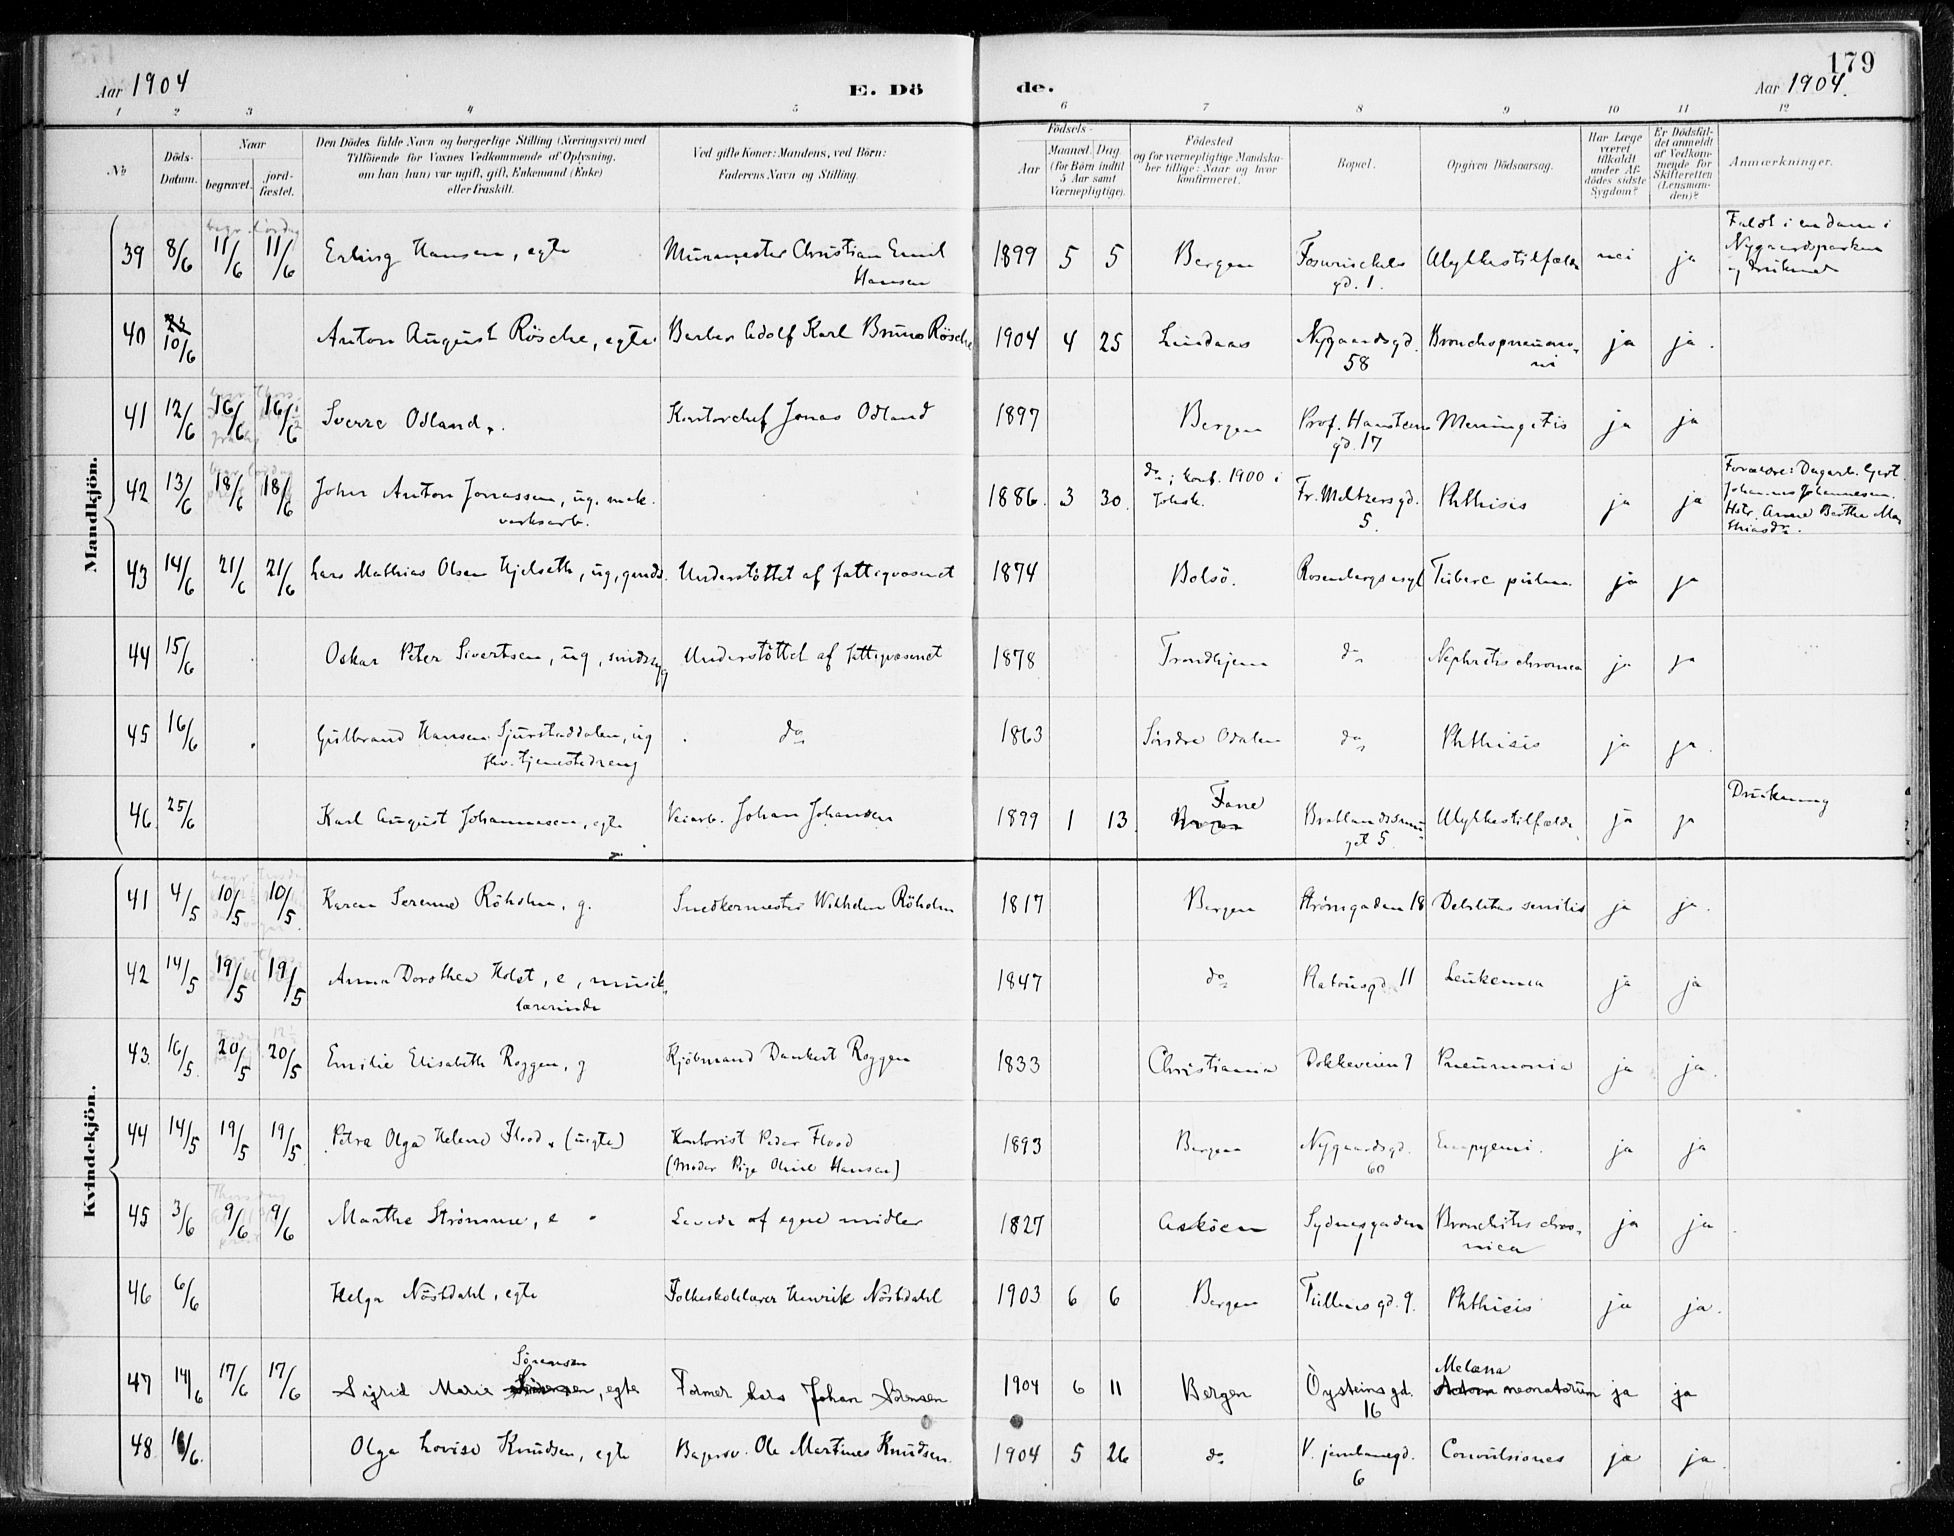 179
Aar 1904
E. Dö
de.
Aar 1904.
1 2 3 4 5 6 7 8 9 10 11 12
No
Döds-Datum.
Naar
begravet.
jord-fæstet.
Den Dödes fulde Navn og borgerlige Stilling (Næringsvei) med
Tilföiende for Voxnes Vedkommende af Oplysning,
om han (hun) var ugift, gift, Enkemand (Enke)
eller fraskilt.
Ved gifte Koner: Mandens, ved Börn:
Faderens Navn og Stilling.
Födsels-
Aar
Maaned. Dag.
(for Börn indtil
5 Aar samt
Værnepligtige).
Födested
og for værnepligtige Mandska-
ber tillige: Naar og hvor
konfirmeret.
Bopæl.
Opgiven Dödsaarsag.
Har Læge
været
tilkaldt
under Af-
dödes sidste
Sygdom?
Er Dödsfal-
det anmeldt
af Vedkom-
mende for
Skifteretten
(Lensman-
den)?
Anmærkninger.
Mandkjön.
39 8/6 11/6 11/6 Erling Hansen, egte Murmester Christian Emil Hansen 1899 5 5 Bergen gd. 1. Ulykkestilfælde nei ja Faldt i en dam i Nygaardsparken og druknede
40 10/6 Anton August Rösche, egte Barber Adolf Karl Bruno Rösche 1904 4 25 Lindaas Nygaardsgd. 58 Bronchopneumoni ja ja.
41 12/6 16/6 16/6 Sverre Odland. Kontorchef Jonas Odland 1897 Bergen Prof. Hansteens gd. 17 Meningitis ja ja
42 13/6 18/6 18/6 John Anton Jonassen, ug. mek. verksarb. 1886. 3 30. do; konf. 1900 i Johsk. Fr. Meltzersgd. 5. Phthisis ja ja Forældre: Dagarb. Gert Johannes Johannesen. Hstr. Anne Berthe Mathiasdr.
43 14/6 21/6 21/6 Lars Mathias Olsen Hjelseth, ug, Understöttet af fattigvæsenet 1874 Bolsö. Rosenbergs asyl Tuberc pulm. ja ja
44 15/6 Oskar Peter Sivertsen, ug, sindssyg Understöttet af fattigvæsenet 1878 Trondhjem do Nephritis chronica ja ja
45 16/6 Gulbrand Hansen Sjurstaddalen, ug fhv. tjenestedreng do 1863 Söndre Odalen do Phthisis ja ja.
46. 25/6 Karl August Johannesen, egte Veiarb. Johan Johansen 1899 1 13. Fane Bratlandssmuget 5 Ulykkestilfælde. ja ja Drukning
Kvindekjön.
41 4/5 10/5 10/5 Karen Serene Röholm, g. Snedkermester Wilhelm Röholm 1817 Bergen Strömgaden 18 Debilitas senilis ja ja.
42 14/5 19/5 19/5 Anna Dorothea Holst, e, musiklærerinde 1847 do Platousgd. 11 Leukemia ja ja
43. 16/5 20/5 20/5 Emilie Elisabeth Roggen, g Kjöbmand Dankert Roggen 1833 Christiania Dokkeveien 7 Pneumonia ja ja.
44 14/5 19/5 19/5 Petra Olga Helene Flood. (uegte) Kontorist Peder Flood (Moder Pige Oline Hansen) 1893 Bergen Nygaardsgd. 60 Empyemi. ja ja
45 3/6 9/6 9/6 Marthe Strömme, e Levede af egne midler 1827 Asköen Sydnesgaden 1 Bronchitis chronica ja ja
46 6/6 Helga Nöstdahl, egte Folkeskolelærer Henrik Nöstdahl 1903 6 6 Bergen Tullinsgd. 9. Phthisis ja ja.
47 14/6 17/6 17/6 Sigrid Marie Sörensen, egte Former Lars Johan Sörensen 1904 6 11 Bergen Öysteinsgd. 16 Melæna neonatorum ja ja
48 /6. Olga Lovise Knudsen, egte Bagersv. Ole Martinus Knudsen. 1904 5 26 do V. jernbanegd. 6 Convulsiones ja ja.